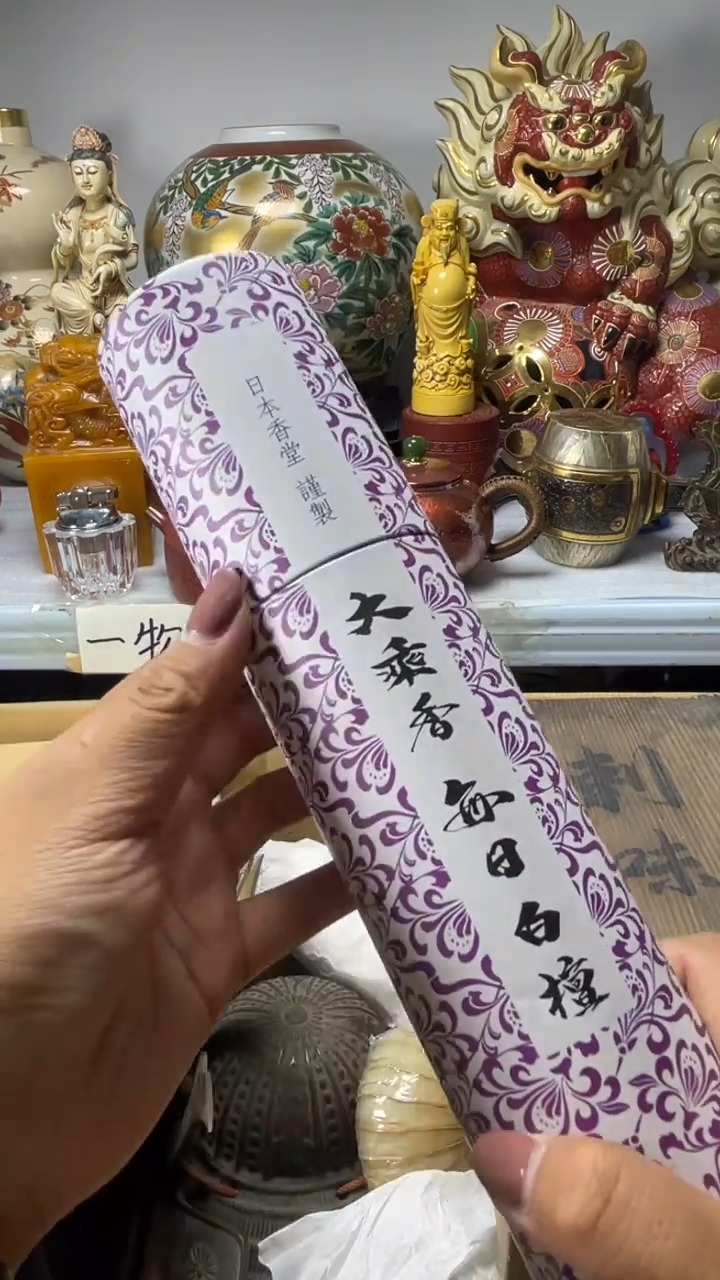 日本香堂 謹製
大乘香 每日白檀
一物
刺
味